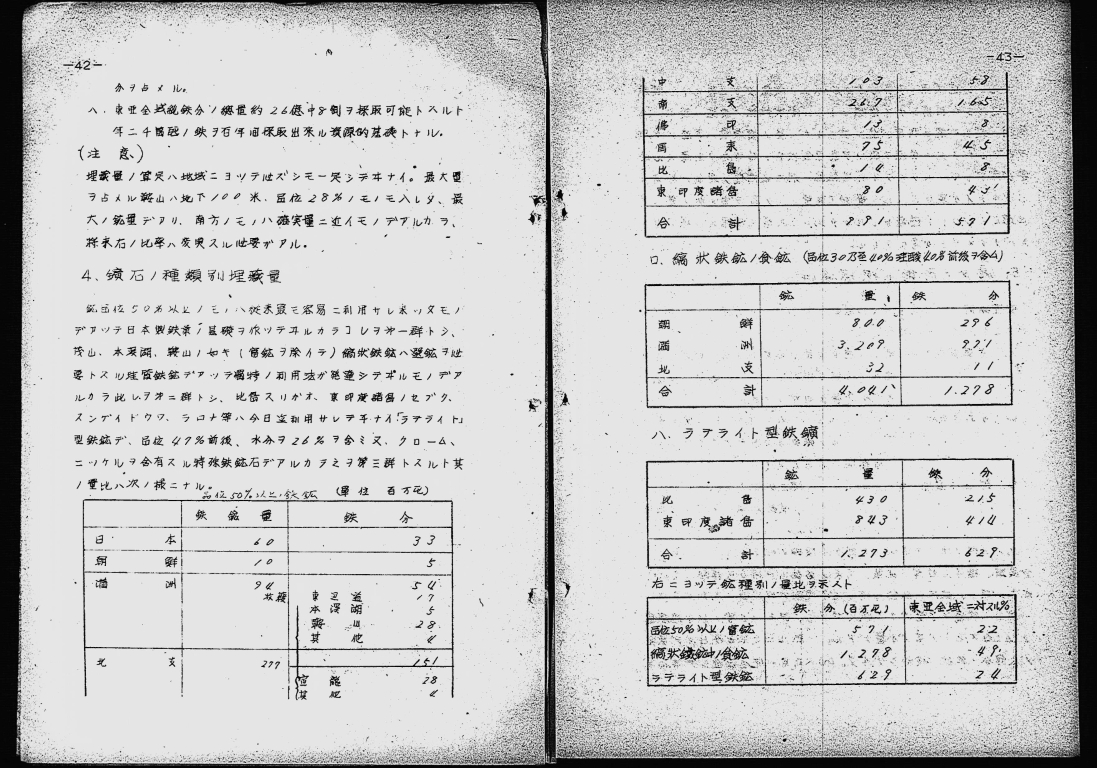 —42—
分ヲ占メル。
ハ、東亜全域鉄分ノ総量約26億中8割ヲ採取可能トスルト
年ニ千萬瓲ノ鉄ヲ百年間採取出来ル資源的基礎トナル。
(注 意)
埋蔵量ノ算定ハ地域ニヨツテ必ズシモ一定シテヰナイ。最大量
ヲ占メル鞍山ハ地下100米、品位28%ノモノモ入レタ、最
大ノ鉱量デアリ、南方ノモノハ確実量ニ近イモノデアルカラ、
将来右ノ比率ハ変更スル必要ガアル。
4、鑛石ノ種類別埋蔵量
鉱品位50%以上ノモノハ従来最モ容易ニ利用サレ来ツタモノ
デアツテ日本製鉄業ノ基礎ヲ作ツテヰルカラコレヲ第一群トシ、
茂山、本溪湖、鞍山ノ如キ(富鉱ヲ除イテ)縞状鉄鉱ハ選鉱ヲ必
要トスル珪質鉄鉱デアツテ獨特ノ利用法ガ発達シテヰルモノデア
ルカラ此レヲ第二群トシ、比島スリガオ、東印度諸島ノセブク、
スンゲイドウワ、ラロナ等ハ今日迄利用サレテヰナイ「ラテライト」
型鉄鉱デ、品位47%前後、水分ヲ26%ヲ含ミ又、クローム、
ニツケルヲ含有スル特殊鉄鉱石デアルカラ之ヲ第三群トスルト其
ノ量比ハ次ノ様ニナル。
品位50%以上ノ鉄鉱 (單位 百万瓲)
鉄鉱量 鉄分
日本 60 33
朝鮮 10 5
満洲 94 54
東辺道 17
本渓湖 5
鞍山 28
其他 4
北支 277 151
宣龍 28
其他 4
—43—
中支 103 58
南支 267 165
佛印 13 8
馬来 75 45
比島 14 8
東印度諸島 80 45
合計 991 571
ロ、縞状鉄鉱ノ貧鉱 (品位30乃至40%珪酸40%前後ヲ含ム)
鉱量 鉄分
朝鮮 800 296
満洲 3.209 971
北支 32 11
合計 4.041 1.278
ハ、ラテライト型鉄鑛
鉱量 鉄分
比島 430 215
東印度諸島 843 414
合計 1.273 629
右ニヨツテ鉱種別ノ量比ヲ示スト
鉄分(百万瓲) 東亜全域ニ対スル%
品位50%以上ノ富鉱 571 22
縞状鉄鉱中ノ貧鉱 1.278 49
ラテライト型鉄鉱 629 24